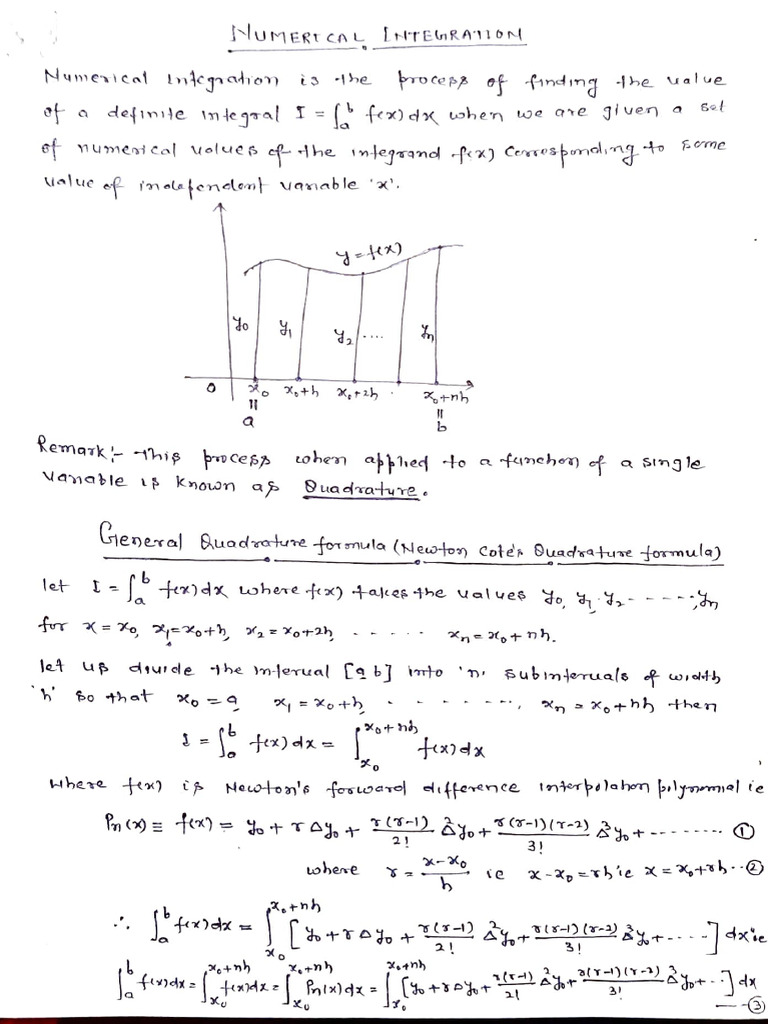 NUMERICAL INTEGRATION
Numerical integration is the process of finding the value
of a definite integral I = ∫_a^b f(x) dx when we are given a set
of numerical values of the integrand f(x) corresponding to some
value of independent variable 'x'.
y = f(x)
y₀ y₁ y₂ .... yₙ
0 x₀ x₀+h x₀+2h . x₀+nh
|| ||
a b
Remark:- This process when applied to a function of a single
variable is known as Quadrature.
General Quadrature formula (Newton Cote's Quadrature formula)
let I = ∫_a^b f(x) dx where f(x) takes the values y₀, y₁, y₂ - - - - - ; yₙ
for x = x₀, x₁ = x₀+h, x₂ = x₀+2h, - - - - - xₙ = x₀ + nh.
let us divide the interval [a b] into 'n' subintervals of width
'h' so that x₀ = a, x₁ = x₀+h, - - - - - - -, xₙ = x₀+nh then
I = ∫_a^b f(x) dx = ∫_{x₀}^{x₀+nh} f(x) dx
where f(x) is Newton's forward difference interpolation polynomial ie
Pₙ(x) ≡ f(x) = y₀ + r Δy₀ + r(r-1)/2! Δ²y₀ + r(r-1)(r-2)/3! Δ³y₀ + - - - - - - - - ①
where r = (x-x₀)/h ie x-x₀ = rh ie x = x₀+rh - - ②
∴ ∫_a^b f(x) dx = ∫_{x₀}^{x₀+nh} [y₀ + r Δy₀ + r(r-1)/2! Δ²y₀ + r(r-1)(r-2)/3! Δ³y₀ + - - - -] dx ie
∫_a^b f(x) dx = ∫_{x₀}^{x₀+nh} f(x) dx = ∫_{x₀}^{x₀+nh} Pₙ(x) dx = ∫_{x₀}^{x₀+nh} [y₀ + r Δy₀ + r(r-1)/2! Δ²y₀ + r(r-1)(r-2)/3! Δ³y₀ + - -] dx
- - - ③